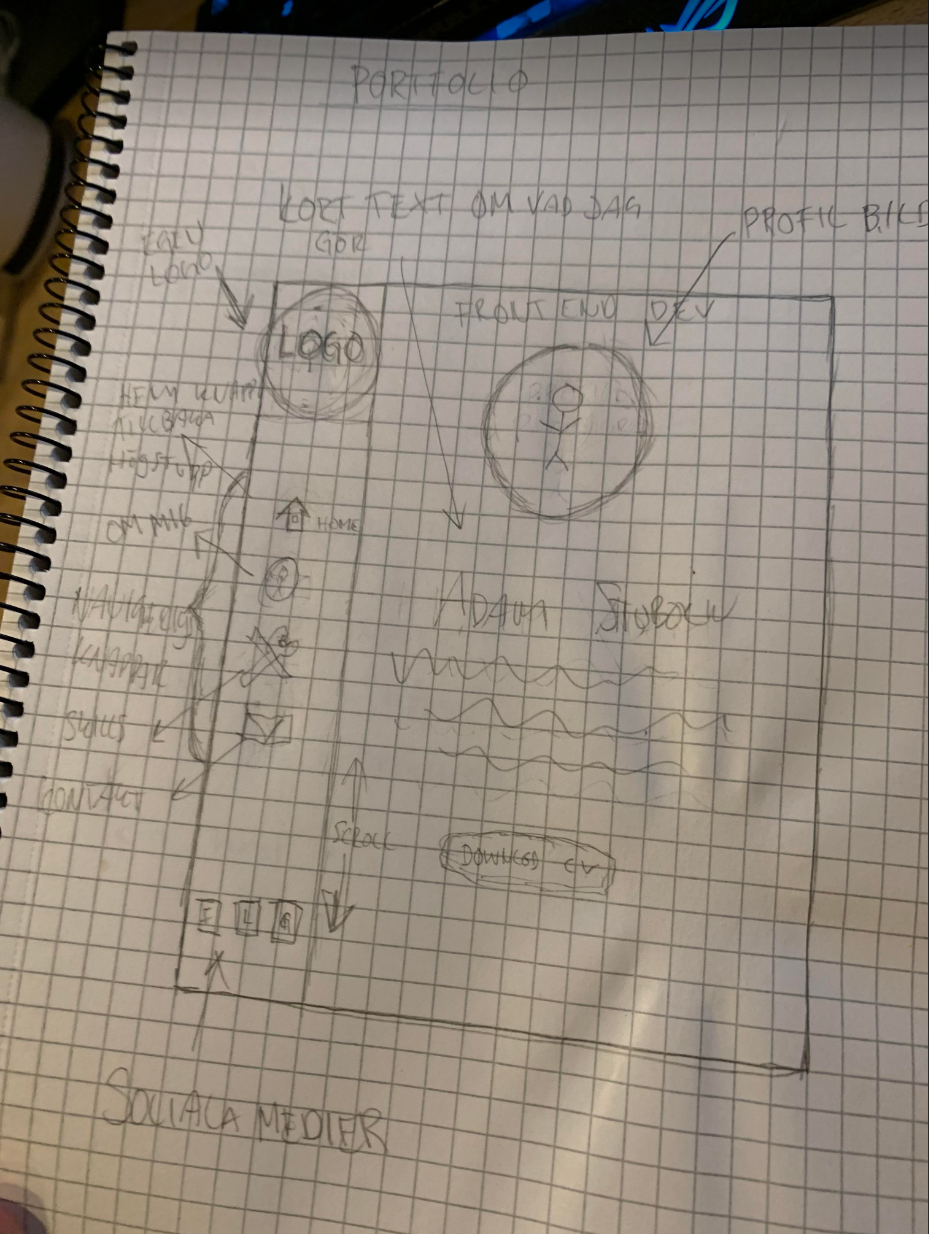 PORTFOLIO
KORT TEXT OM VAD JAG
GÖR
PROFIL BILD
LOGO
LOGO
FRONT END DEV
HEM KNAPP
TILLBAKA
HÖGST UPP
HOME
OM MIG
KNAPPAR
SKILLS
CONTACT
SCROLL
Adam
CV
F L G
SOCIALA MEDIER